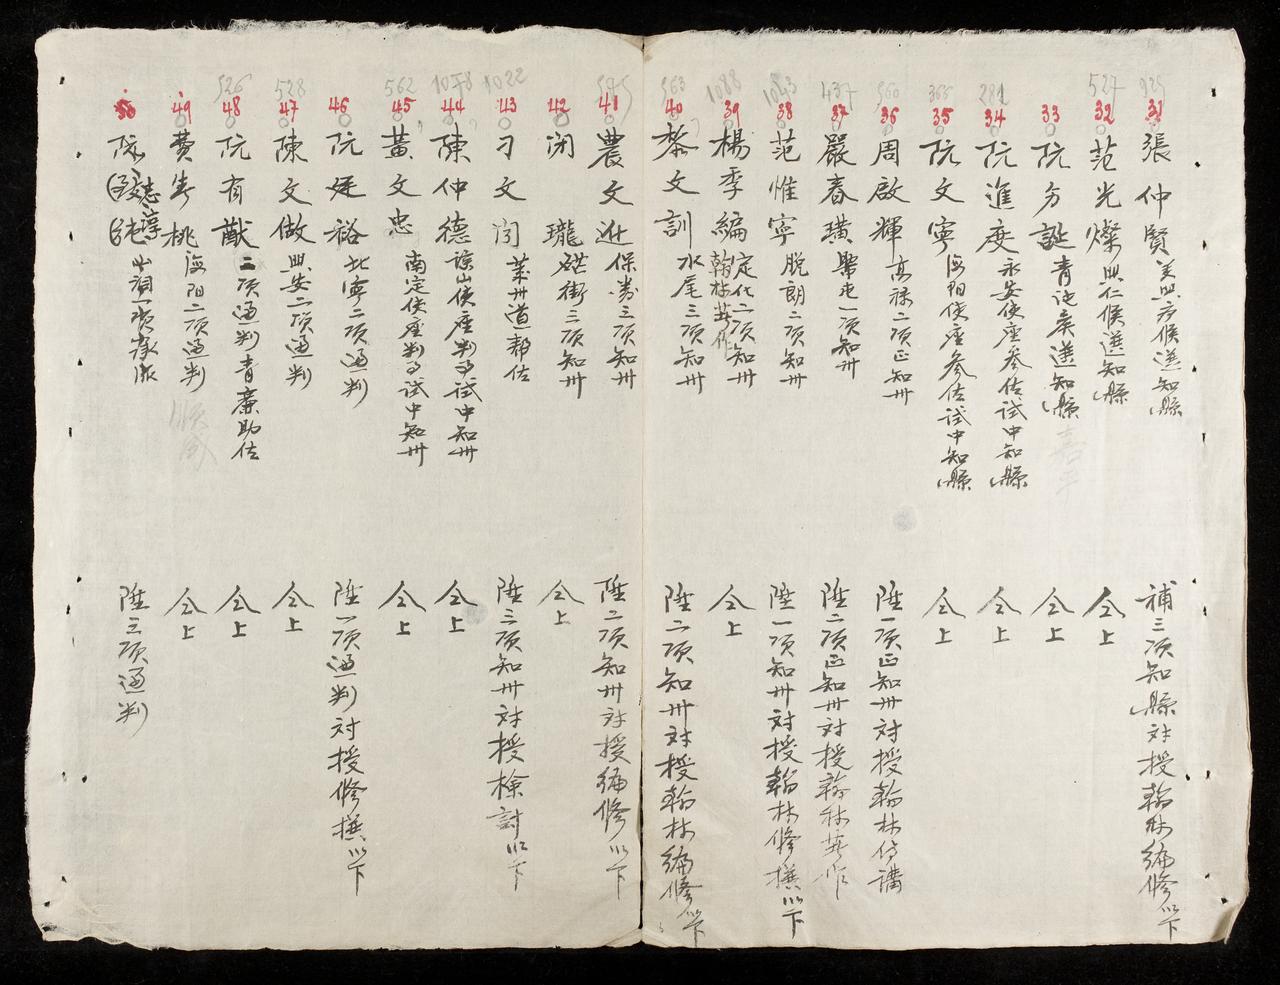 929
31
張仲賢 美興彥候選知縣
補三項知縣対授翰林編修以下
527
32
范光燦 興仁候選知縣
仝上
33
阮芳誕 青沱候選知縣 嘉平
仝上
281
34
阮進度 永安使座參佐試中知縣
仝上
365
35
阮文寧 海阳使座參佐試中知縣
仝上
960
36
周啟輝 高祿二项正知州
陞一项正知州対授翰林侍講
437
37
嚴春璜 一项知州
陞二项正知州対授翰林著作
38
范惟寧 脱朗二项知州
陞一项知州対授翰林修撰以下
1088
39
楊季編 定化二项知州 翰林著作
仝上
963
40
黎文訓 水尾三项知州
陞二项知州対授翰林編修以下
41
農文进 保勝三项知州
陞二项知州対授編修以下
42
闭瓏 硭街三项知州
仝上
1022
43
刁文 萊州道帮佐
陞三项知州対授検討以下
1078
44
陳仲德 諒山使座判事試中知州
仝上
562
45
黃文忠 南定使座判事試中知州
仝上
46
阮廷裕 北寧二项通判
陞一项通判対授修撰以下
528
47
陳文做 興安二项通判
仝上
526
48
阮有猷 二项通判青廉助佐
仝上
49
費 桃 海阳二项通判
仝上
50
阮志淳 一项承派
陞三项通判